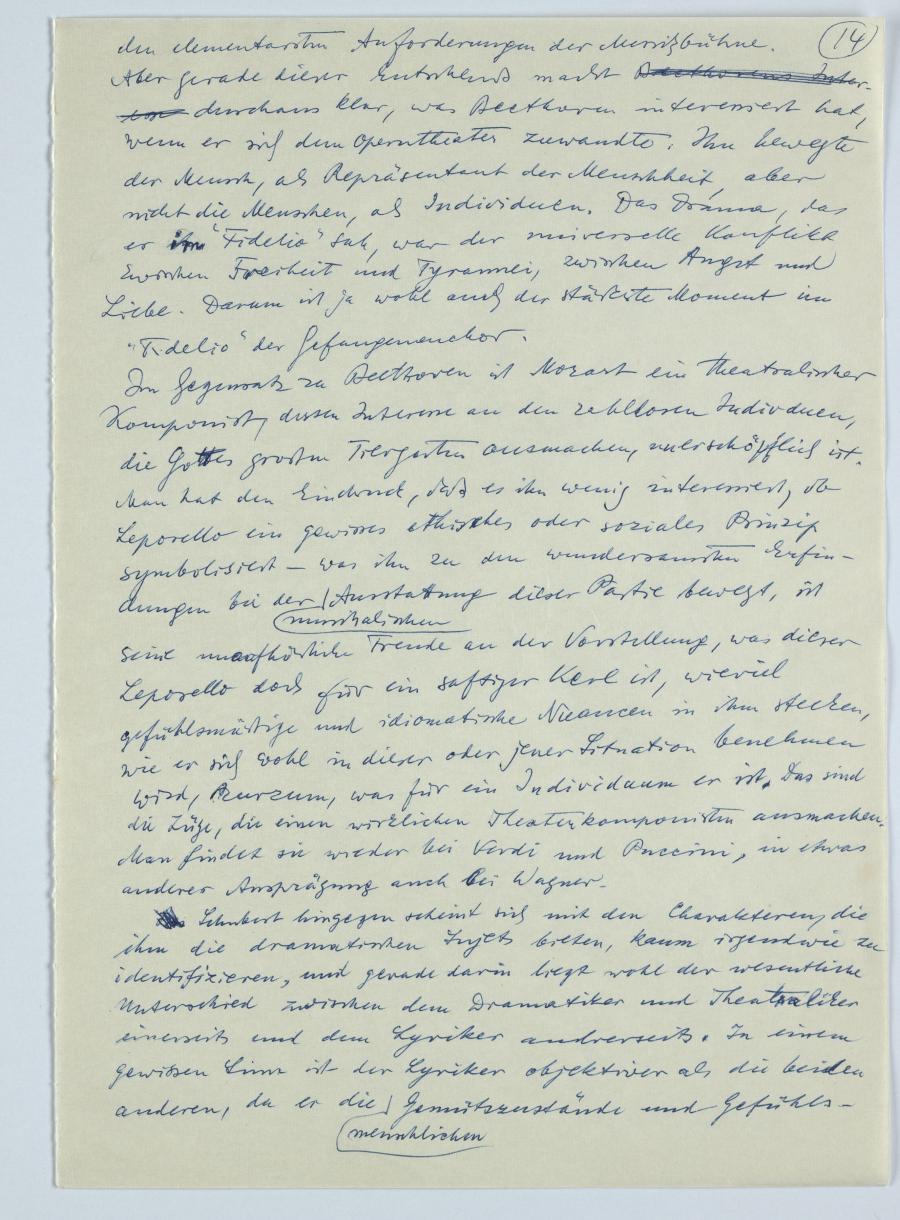 14
den elementarsten Anforderungen der Musikbühne.
Aber gerade dieser Entschluß macht Beethovens Inter-
esse durchaus klar, was Beethoven interessiert hat,
wenn er sich dem Operntheater zuwandte. Ihn bewegte
der Mensch, als Repräsentant der Menschheit, aber
nicht die Menschen, als Individuen. Das Drama, das
er im "Fidelio" sah, war der universelle Konflikt
zwischen Freiheit und Tyrannei, zwischen Angst und
Liebe. Darum ist ja wohl auch der stärkste Moment im
"Fidelio" der Gefangenenchor.
Im Gegensatz zu Beethoven ist Mozart ein theatralischer
Komponist, dessen Interesse an den zahllosen Individuen,
die Gottes grosten Tiergarten ausmachen, unerschöpflich ist.
Man hat den Eindruck, daß es ihn wenig interessiert, ob
Leporello ein gewisses ethisches oder soziales Prinzip
symbolisiert – was ihn zu den wundersamsten Erfin-
dungen bei der Ausstattung dieser Partie bewegt, ist
musikalischen
seine unaufhörliche Freude an der Vorstellung, was dieser
Leporello doch für ein saftiger Kerl ist, wieviel
gefühlsmäßige und idiomatische Nuancen in ihm stecken,
wie er sich wohl in dieser oder jener Situation benehmen
wird, kurzum, was für ein Individuum er ist. Das sind
die Züge, die einen wirklichen Theaterkomponisten ausmachen.
Man findet sie wieder bei Verdi und Puccini, in etwas
anderer Ausprägung auch bei Wagner.
Schubert hingegen scheint sich mit den Charakteren, die
ihm die dramatischen Sujets bieten, kaum irgendwie zu
identifizieren, und gerade darin liegt wohl der wesentliche
Unterschied zwischen dem Dramatiker und Theatraliker
einerseits und dem Lyriker andrerseits. In einem
gewissen Sinn ist der Lyriker objektiver als die beiden
anderen, da er die Gemütszustände und Gefühls-
menschlichen